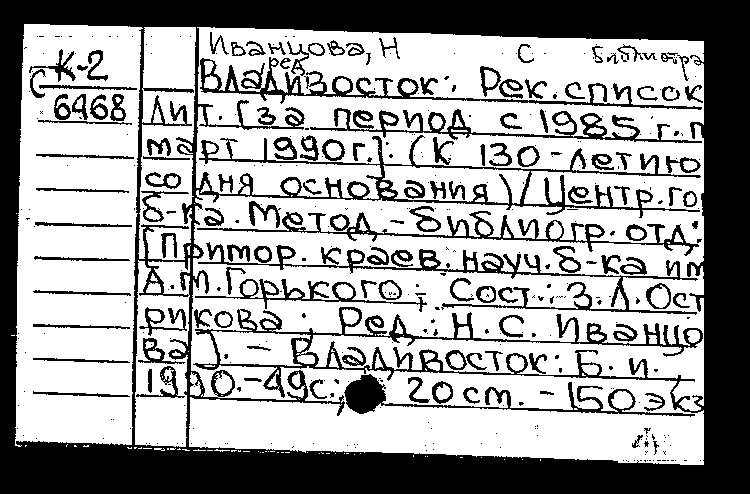 Иванцова, Н С Библиогра
К-2 ред
С Владивосток: Рек. список
6468 лит. [за период с 1985 г. п
март 1990г.]: (К 130-летию
со дня основания) / Центр. го
б-ка. Метод.-библиогр. отд;
[Примор. краев. науч. б-ка им
А.М. Горького; Сост.: З.Л. Ост
рикова; Ред.: Н.С. Иванцо
ва]. - Владивосток: Б. и.,
1990.-49с.; 20 cm. - 150 экз